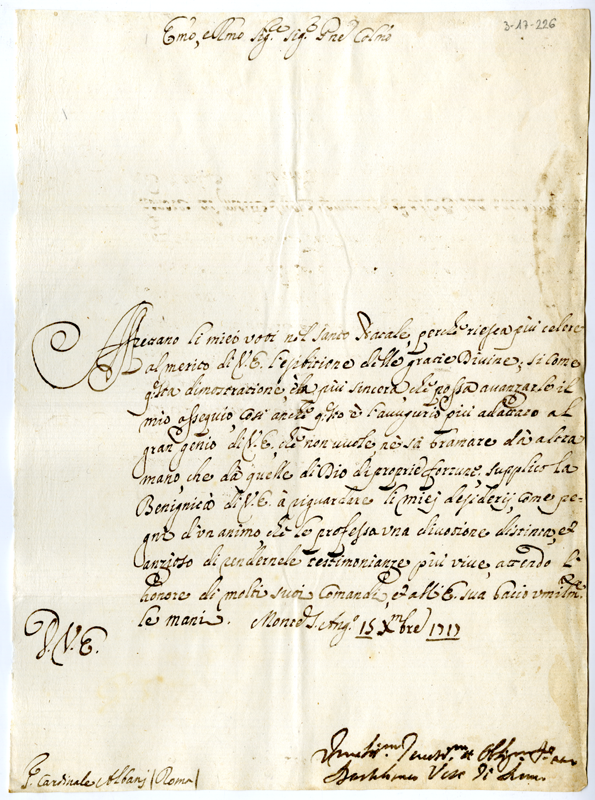 3-17-226
Emo, e Rmo Sigr. Sigr. Pne Colmo
Affrettano li miei voti nel Santo Natale, perche riesca più celere
al merito di V.E. l'esibitione delle gratie Divine; si come
qsta dimostratione, è la più sincera, che possa avanzarle il
mio ossequio, così anche qsto è l'augurio più adattato al
gran genio di V.E., che non vuole, nè sà bramare dà altra
mano, che dà quelle di Dio di proprie fortune, supplico la
Benignità di V.E. à riguardare li miej desiderij, come pe-
gni d'un animo che le professa una divotione distinta, et
anzioso di rendernele testimonianze più vive, attendo l'
honore di molti suoi Comandi, et all'E. sua bacio umilmte.
le mani. Monte S. Angº. 15 Xmbre 1717
D.V.E.
Devotm. et Oblig.
Sr. Cardinale Albanj (Roma)